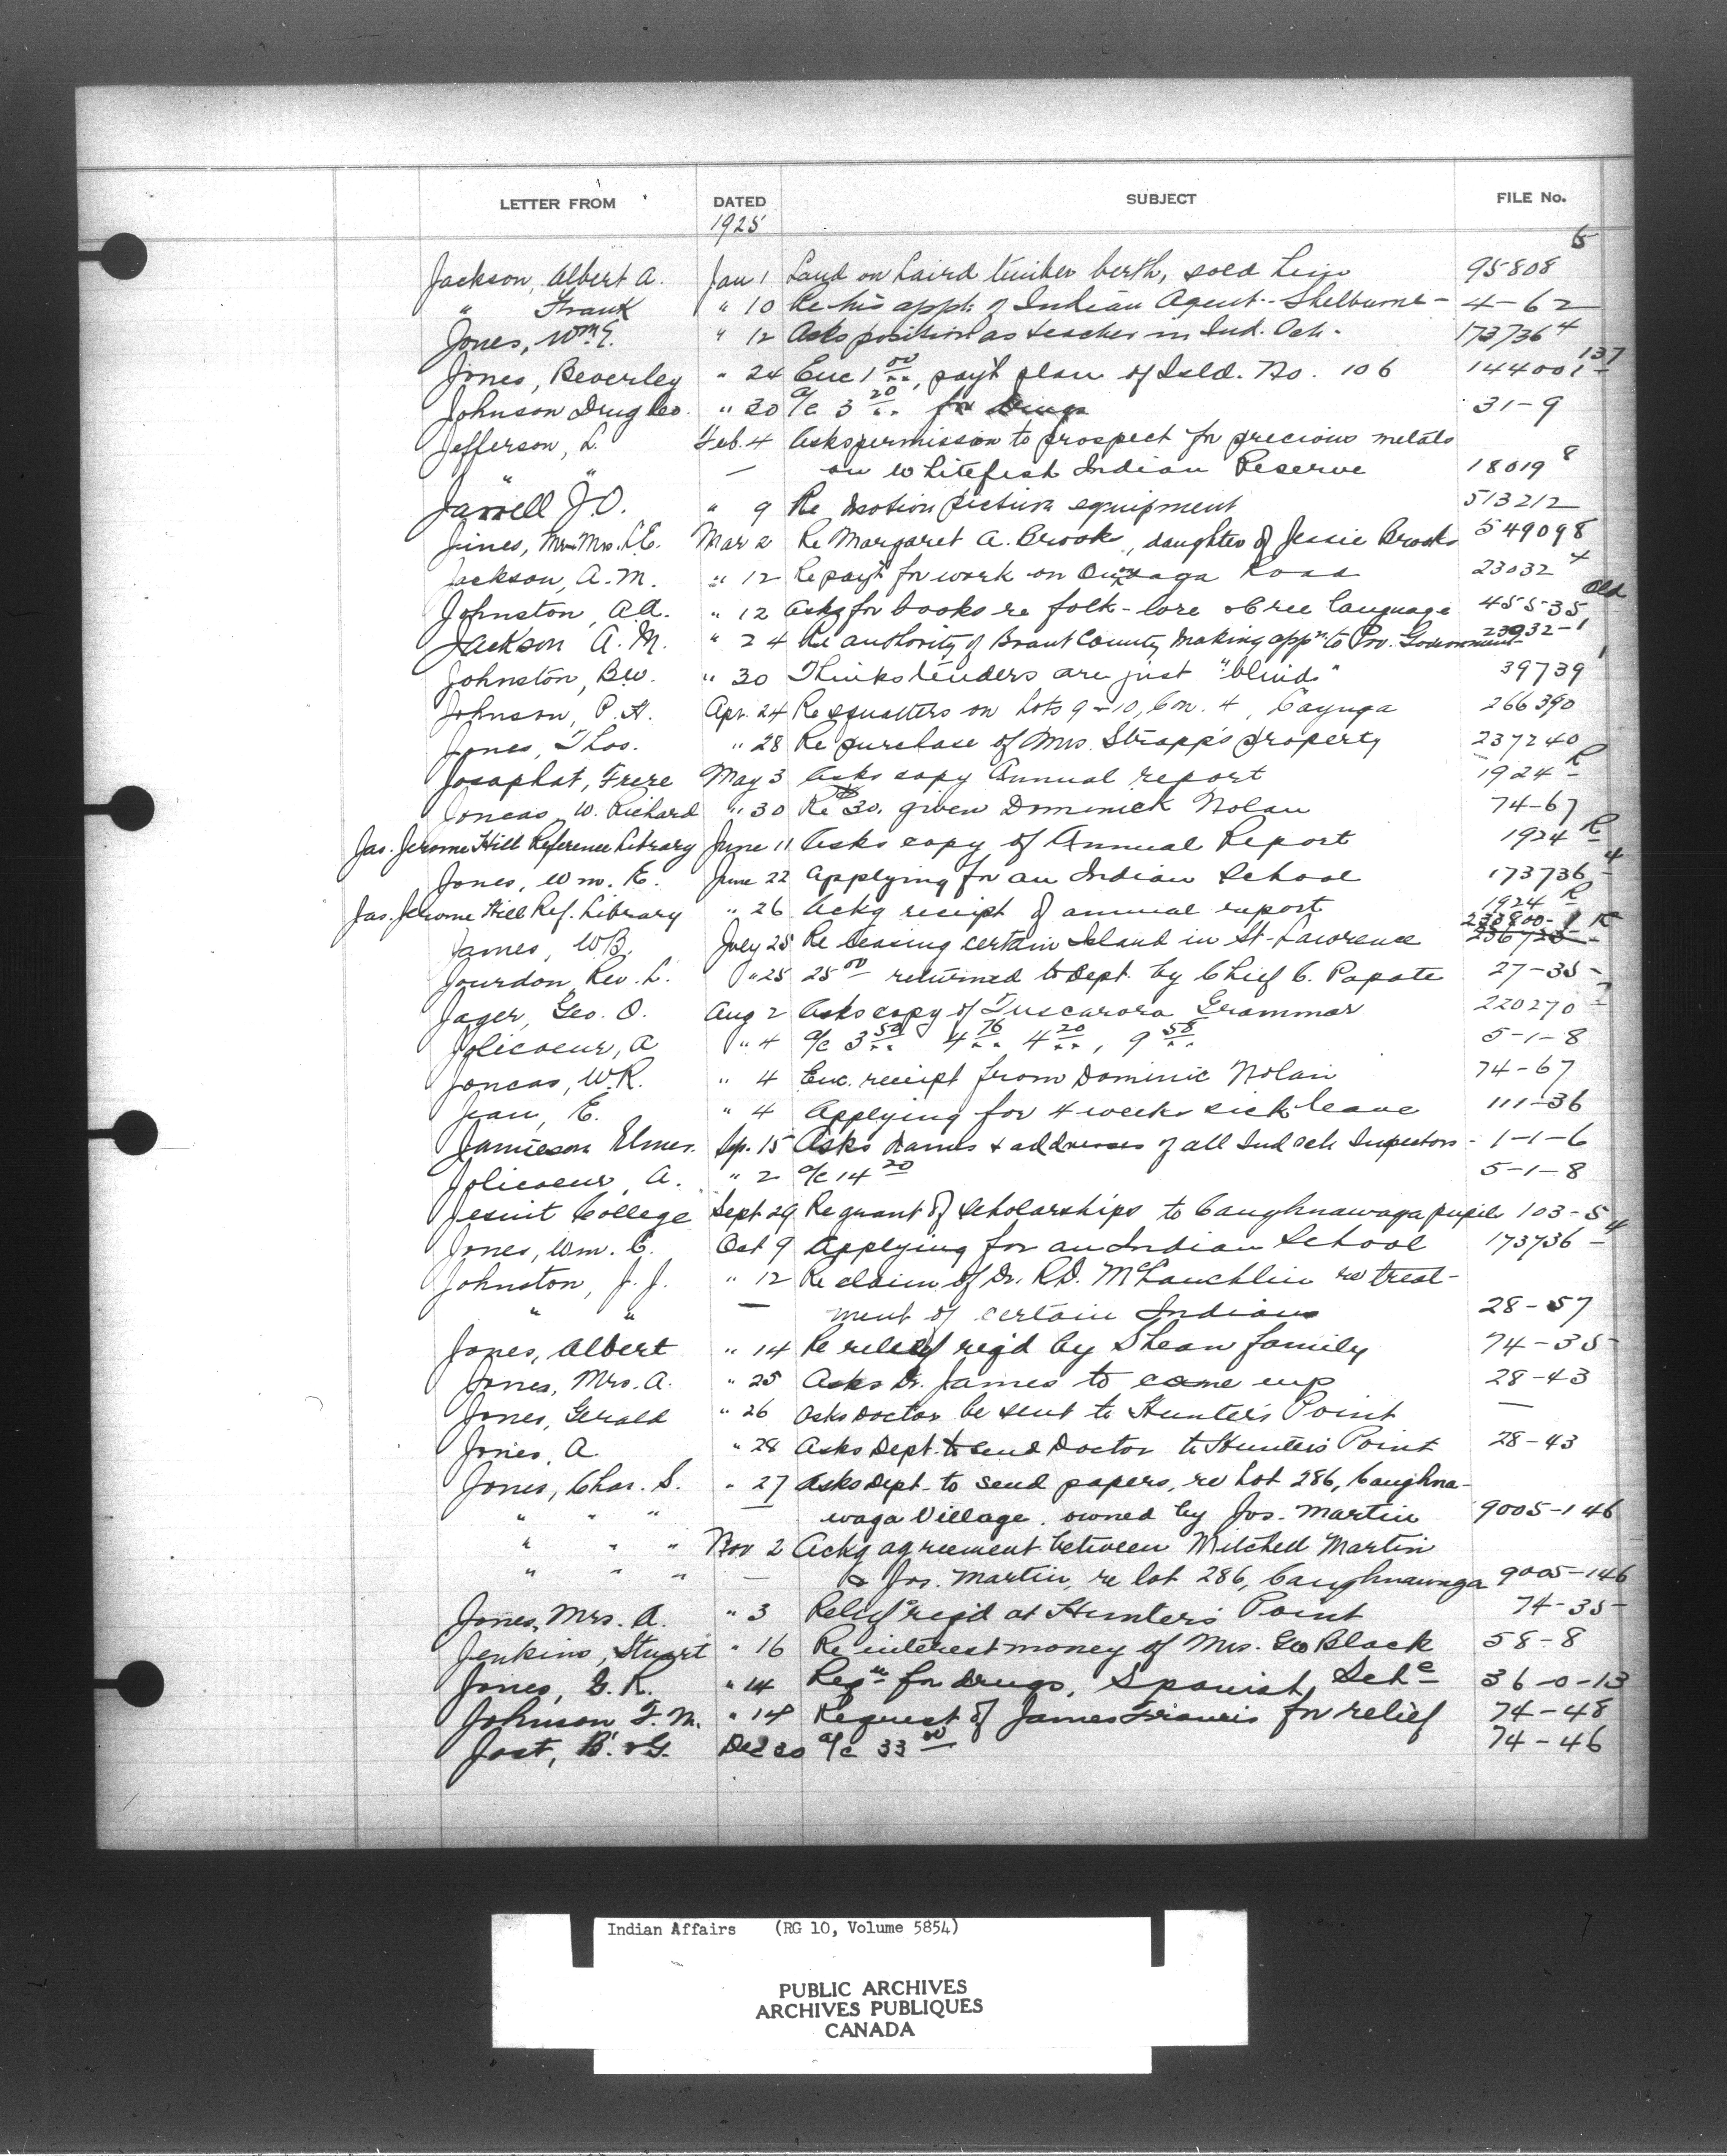 LETTER FROM DATED SUBJECT FILE No.
1925
Jackson, Albert A. Jan 1 Land on Laird timber berth, sold him 95808 6
" Frank " 10 Re his appt. of Indian Agent - Shelburne - 4-62
Jones, Wm E. " 12 Asks position as teacher in Ind. Sch. 173736 4
Jones, Beverley " 24 Enc 1 00, pay't plan of Isld. No. 106 144001 137
Johnson Drug Co. " 30 a/c 3 20 for Drugs 31-9
Jefferson, L. Feb. 4 Asks permission to prospect for precious metals
" " — on Whitefish Indian Reserve 18019 8
Jarrell J.O. " 9 Re Motion picture equipment 513212
Jines, Mr & Mrs. C.E. Mar 2 Re Margaret A. Brook, daughter of Jessie Brooks 549098
Jackson, A.M. " 12 Re pay't for work on Onondaga Road 23032 4
Johnston, A.A. " 12 Asks for books re folk-lore & Cree language 45535 Old
Jackson A.M. " 24 Re authority of Brant County making appn to Pro. Government 23032-1
Johnston, B.W. " 30 Thinks tenders are just "blinds" 39739 1
Johnson, P.H. Apr. 24 Re squatters on Lots 9-10, Con. 4, Cayuga 266390
Jones, Thos. " 28 Re purchase of Mrs. Strapp's property 237240
Josaphat, Frere May 3 Asks copy Annual report 1924 R
Joncas, W. Richard " 30 Re $30. given Dominick Nolan 74-67
Jas. Jerome Hill Reference Library June 11 Asks copy of Annual Report 1924 R
Jones, Wm. E. June 22 Applying for an Indian School 173736 4
Jas. Jerome Hill Ref. Library " 26 Ackg receipt of annual report 1924 R
James, W.B. July 25 Re leasing certain Island in St-Lawrence
Jourdon, Rev. L. " 25 25 00 returned to Dept. by Chief C. Papate 27-35-
Jager, Geo. O. Aug 2 Asks copy of Tuscarora Grammar 220270 7
Jolicoeur, A " 4 a/c 3 50 4 76 4 20, 9 58 5-1-8
Joncas, W.R. " 4 Enc. receipt from Dominic Nolan 74-67
Jean, E. " 4 Applying for 4 weeks sick leave 111-36
Jamieson Elmer. Sep. 15 Asks names & addresses of all Ind Sch Inspectors - 1-1-6
Jolicoeur, A. " 2 a/c 14 20 5-1-8
Jesuit College Sept 29 Re grant of scholarships to Caughnawaga pupils 103-5
Jones, Wm. E. Oct 9 Applying for an Indian School 173736 4
Johnston, J.J. " 12 Re claim of Dr. R.D. McLauchlin re treat-
" " — ment of certain Indians 28-57
Jones, Albert " 14 Re relief req'd by Shean family 74-35
Jones, Mrs. A. " 25 Asks Dr. James to come up 28-43
Jones, Gerald " 26 Asks Doctor be sent to Hunter's Point —
Jones, A. " 28 Asks Dept. to send Doctor to Hunter's Point 28-43
Jones, Chas. S. " 27 Asks Dept. to send papers, re Lot 286, Caughna-
" " " — waga Village, owned by Jos. Martin 9005-146
" " " Nov 2 Ackg agreement between Mitchell Martin
" " " — & Jos. Martin, re lot 286, Caughnawaga 9005-146
Jones, Mrs. A. " 3 Relief req'd at Hunter's Point 74-35
Jenkins, Stuart " 16 Re interest money of Mrs. Geo Black 58-8
Jones, G.R. " 14 Reqn for drugs, Spanish, Sch e 36-0-13
Johnson F.M. " 14 Request of James Francis for relief 74-48
Jost, B. & G. Dec 20 a/c 33 00 74-46
Indian Affairs (RG 10, Volume 5854)
PUBLIC ARCHIVES
ARCHIVES PUBLIQUES
CANADA